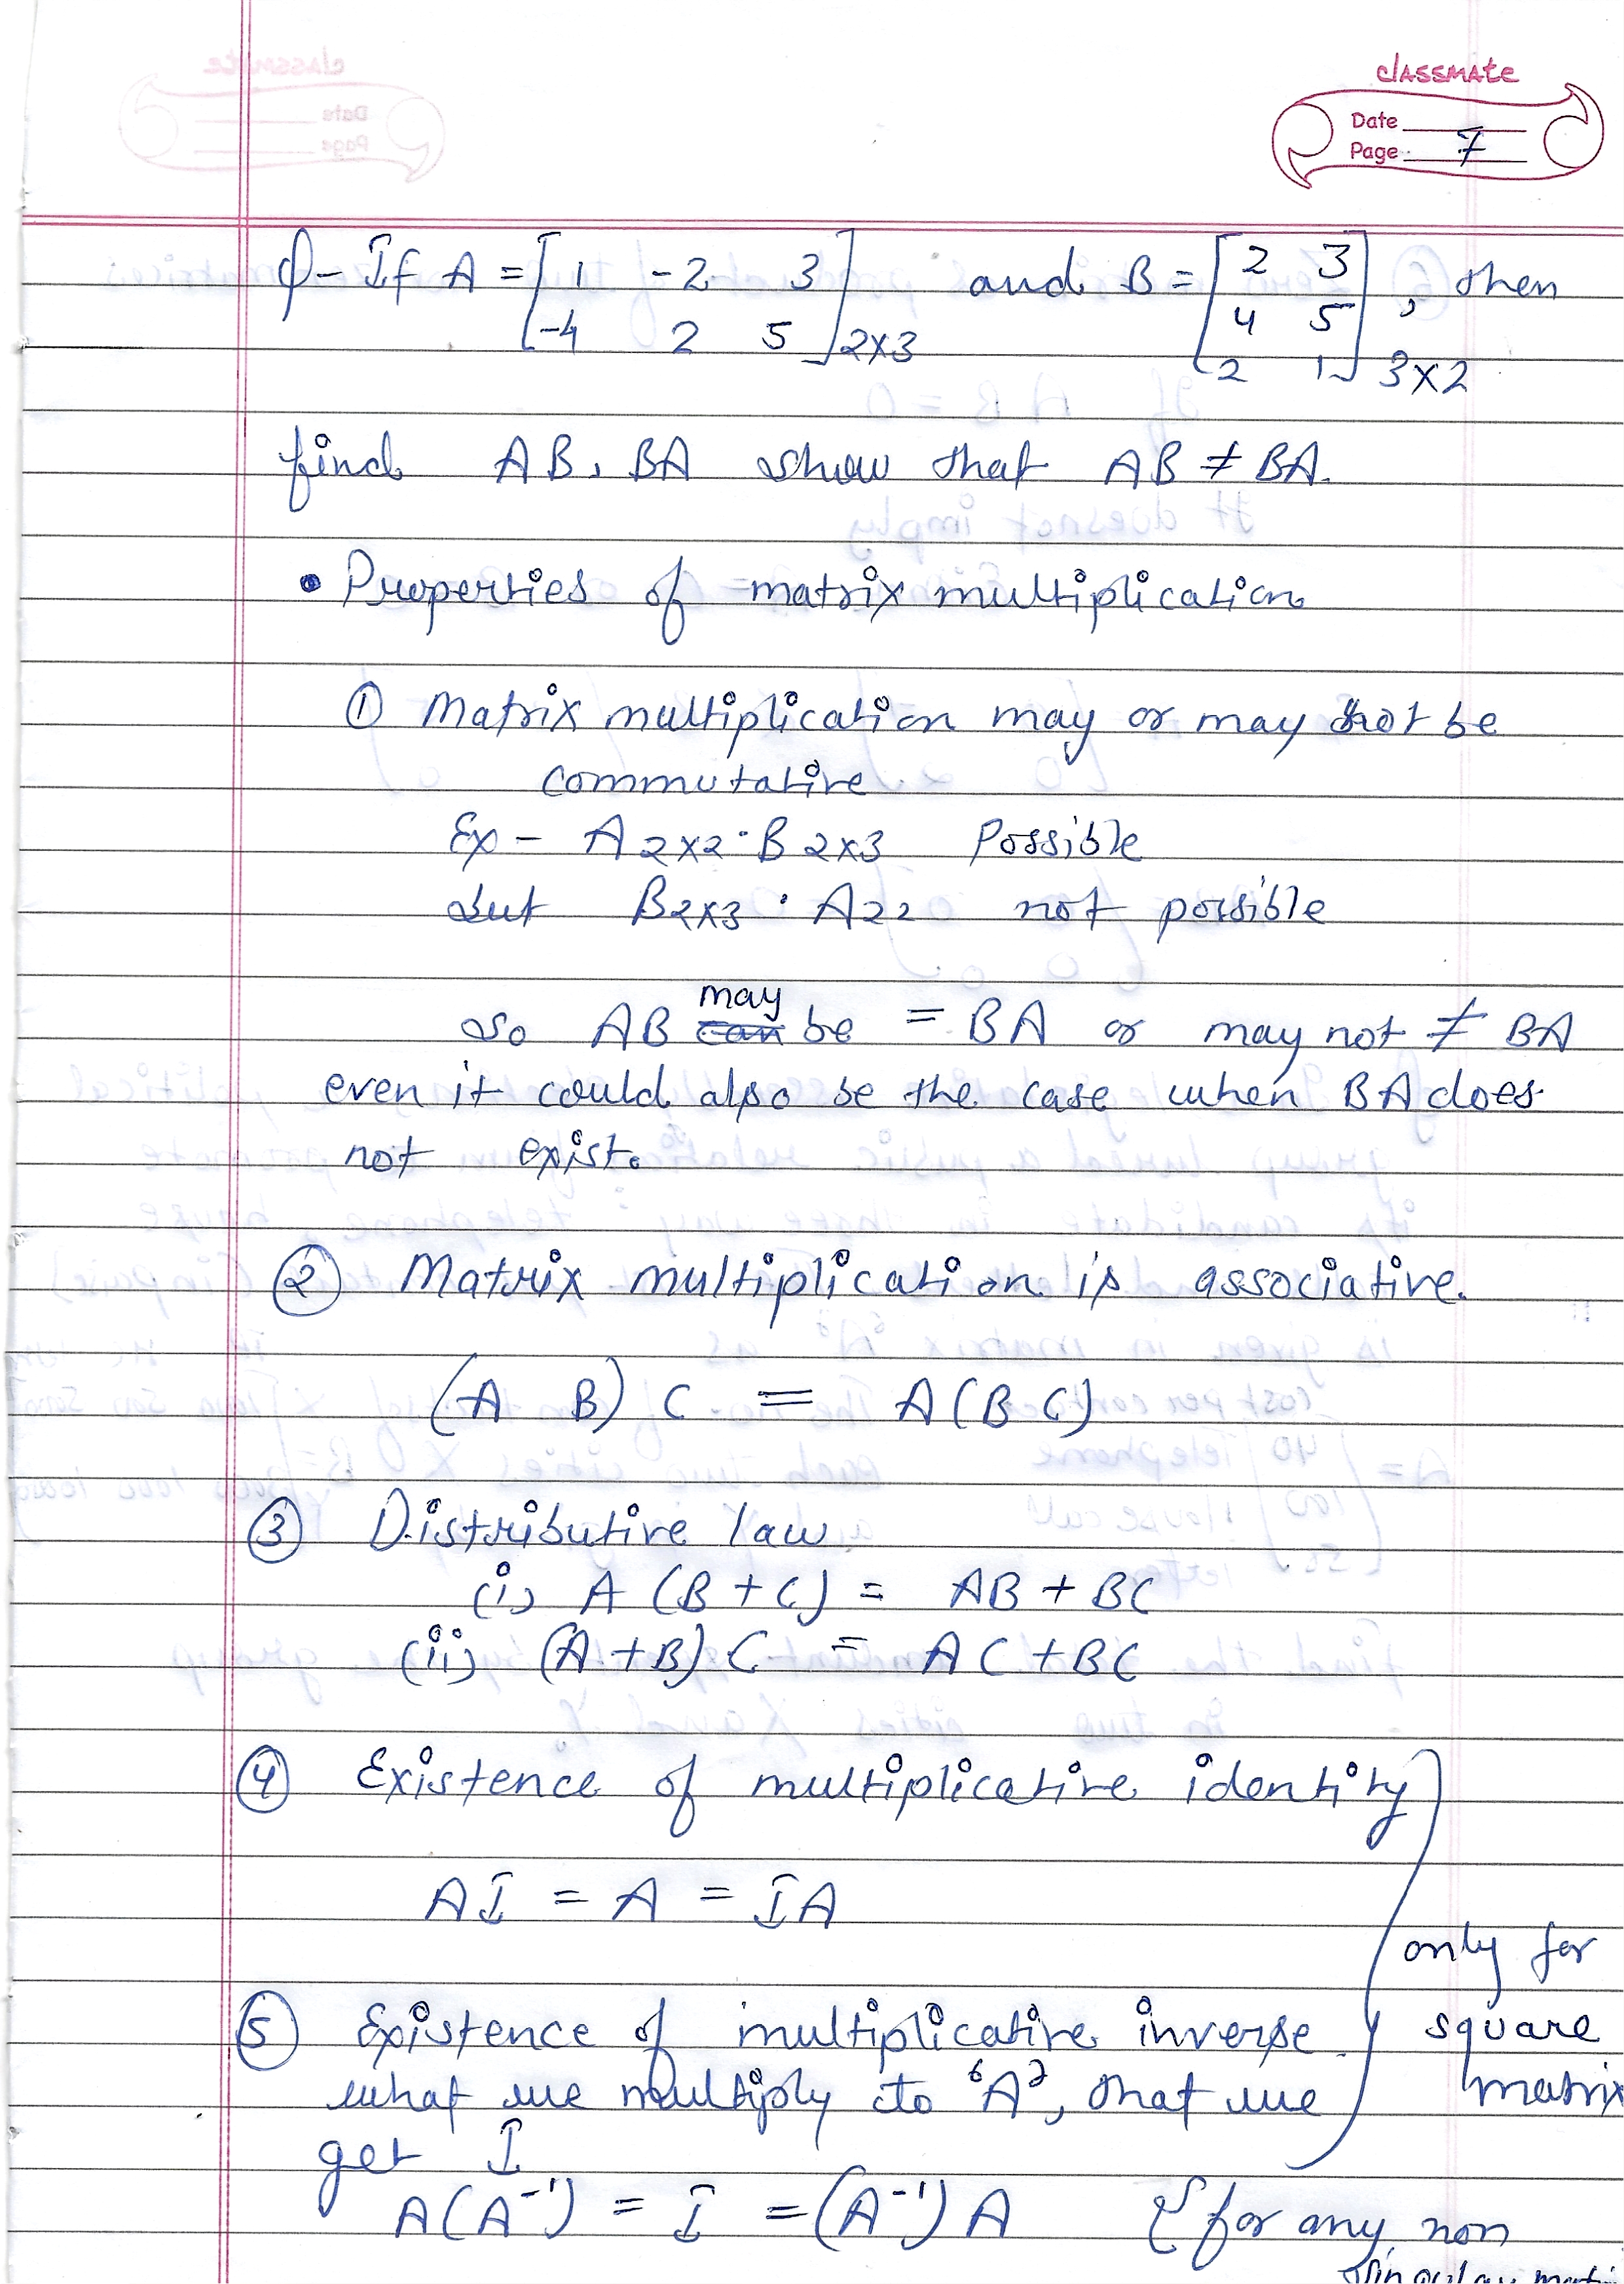 classmate
Date
Page 7
Q- If A = [1 -2 3
-4 2 5] 2x3 and B = [2 3
4 5
2 1] 3x2, then
find AB, BA show that AB ≠ BA.
• Properties of matrix multiplication
① Matrix multiplication may or may not be
commutative
Ex - A 2x2 · B 2x3 Possible
but B2x3 · A22 not possible
so AB may be = BA or may not ≠ BA
even it could also be the case when BA does
not exist.
② Matrix multiplication is associative.
(A B) C = A(B C)
③ Distributive law
(i) A (B + C) = AB + BC
(ii) (A + B) C = AC + BC
④ Existence of multiplicative identity
AI = A = IA
only for
square
matrix
⑤ Existence of multiplicative inverse
what we multiply to 'A', that we
get I
A(A⁻¹) = I = (A⁻¹) A {for any non
singular matri